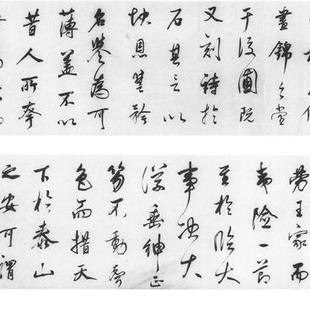 晝錦之堂
于後圃既
又刻詩於
石其言以
快恩讐矜
名譽為可
薄蓋不以
昔人所夸
勞王家而
夷險一節
至於臨大
事決大
議垂紳正
笏不動聲
色而措天
下於泰山
之安可謂